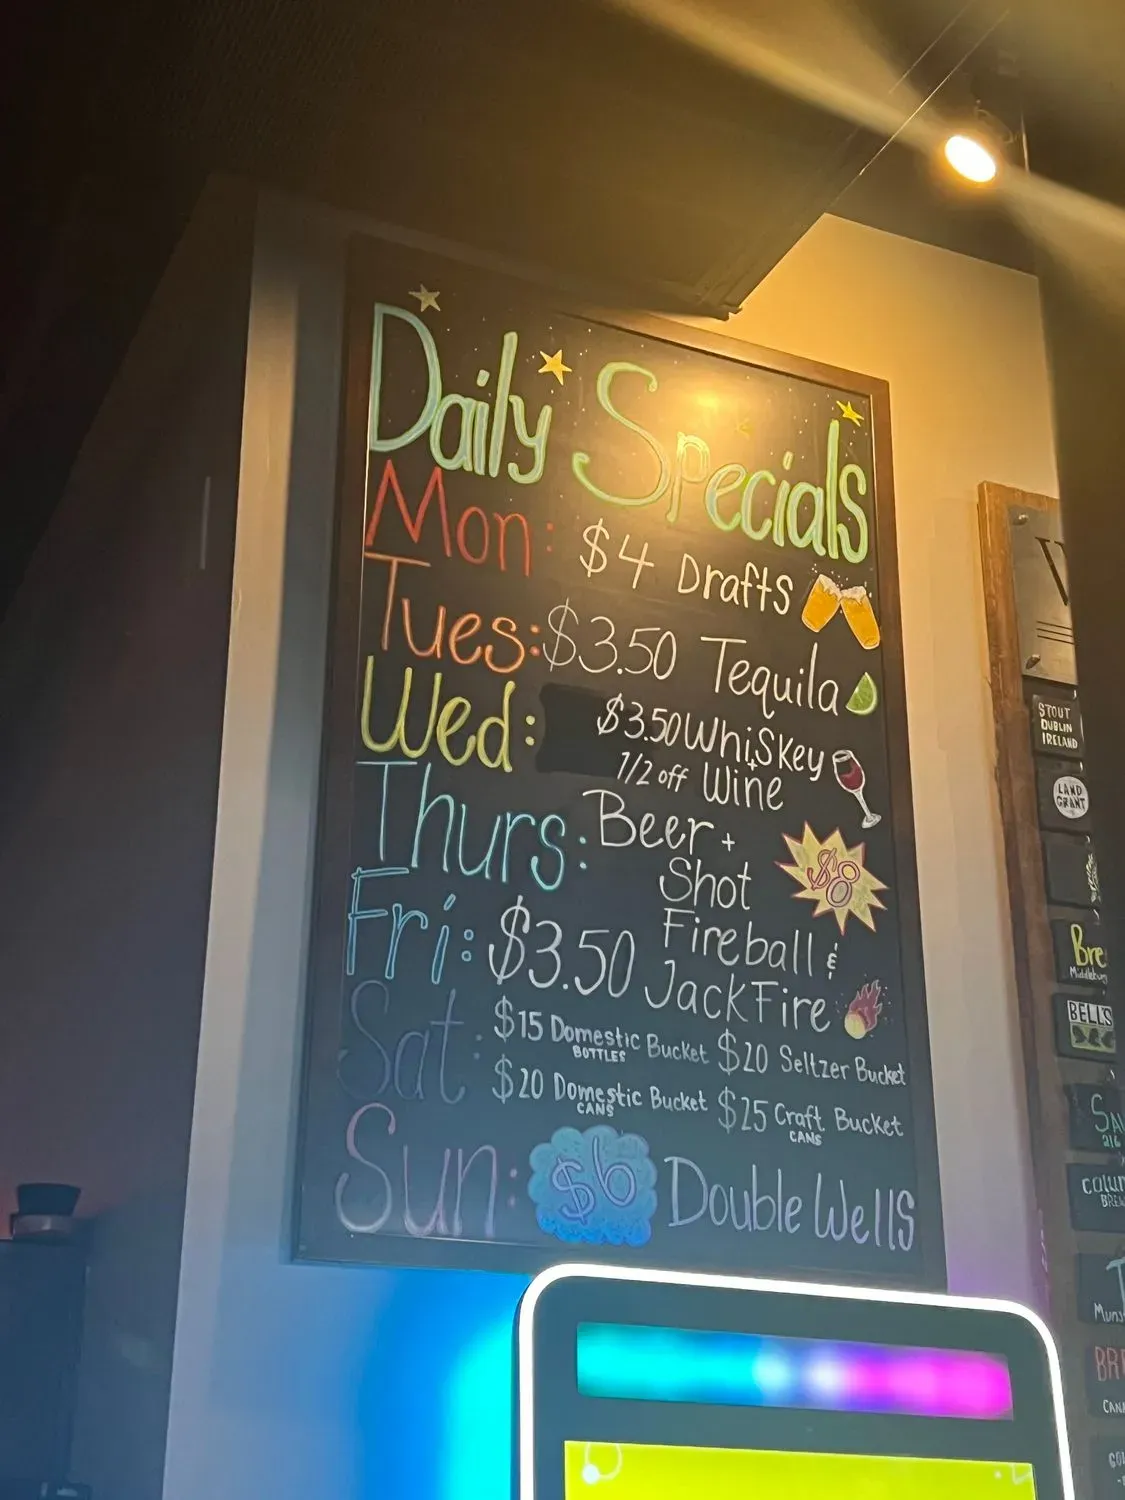 Daily Specials
Mon: $4 Drafts
Tues: $3.50 Tequila
Wed: $3.50 Whiskey
+
1/2 off Wine
Thurs: Beer +
Shot
$8
Fri: $3.50 Fireball &
JackFire
Sat: $15 Domestic Bucket $20 Seltzer Bucket
BOTTLES
$20 Domestic Bucket $25 Craft Bucket
CANS CANS
Sun: $6 Double Wells
STOUT
DUBLIN
IRELAND
LAND
GRANT
Bre
Middleburg
BELL'S
216
BREW